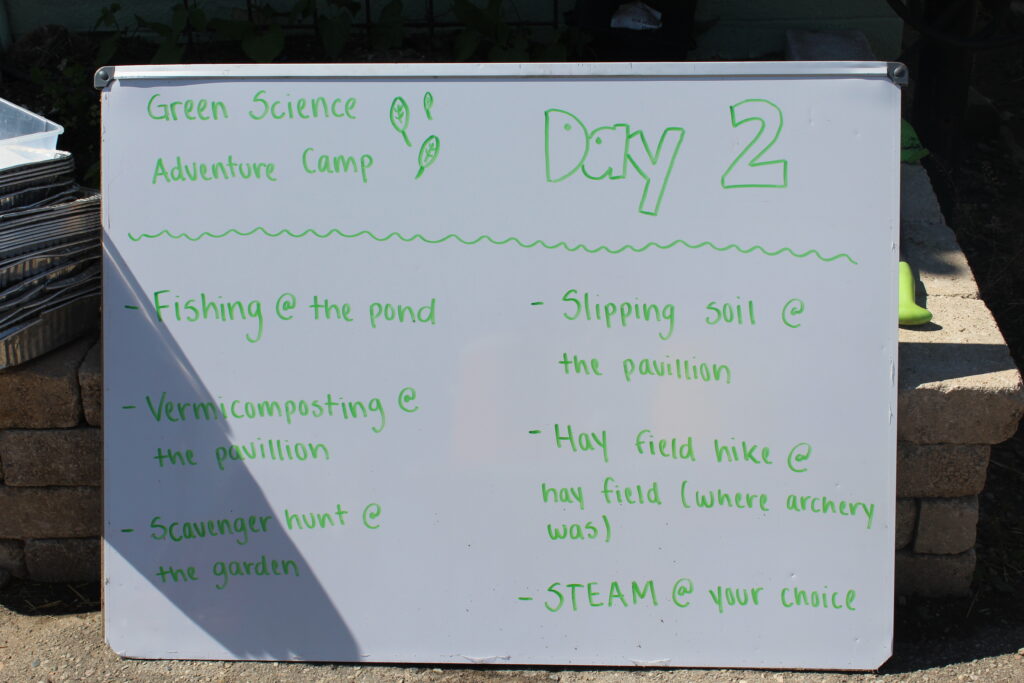 Green Science
Adventure Camp
Day 2
- Fishing @ the pond
- Vermicomposting @
the pavillion
- Scavenger hunt @
the garden
- Slipping soil @
the pavillion
- Hay field hike @
hay field (where archery
was)
- STEAM @ your choice